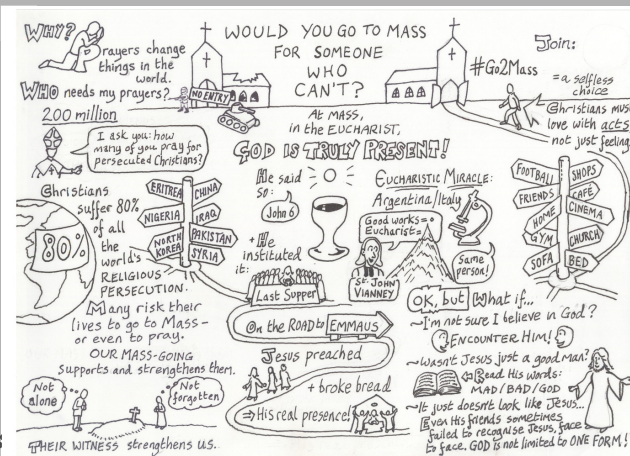 WHY?
Prayers change
things in the
world.
WHO needs my prayers?
200 million
I ask you: how
many of you pray for
persecuted Christians?
Christians
suffer 80%
of all
the
world's
RELIGIOUS
PERSECUTION.
80%
ERITREA
CHINA
NIGERIA
IRAQ
NORTH
KOREA
PAKISTAN
SYRIA
Many risk their
lives to go to Mass –
or even to pray.
OUR MASS-GOING
supports and strengthens them.
Not
alone
Not
forgotten
THEIR WITNESS strengthens us.
NO ENTRY
WOULD YOU GO TO MASS
FOR SOMEONE
WHO
CAN'T?
AT MASS,
in the EUCHARIST,
GOD IS TRULY PRESENT!
He said
so:
John 6
+ He
instituted
it:
Last Supper
EUCHARISTIC MIRACLE:
Argentina/Italy
Good works=
Eucharist=
ST. JOHN
VIANNEY
Same
person!
On the ROAD to EMMAUS
Jesus preached
+ broke bread
⇒ His real presence!
#Go2Mass
Join:
=a selfless
choice
Christians must
love with acts
not just feeling
FOOTBALL
SHOPS
FRIENDS
CAFÉ
HOME
CINEMA
GYM
CHURCH
SOFA
BED
OK, but What if...
~I'm not sure I believe in God?
ENCOUNTER HIM!
~Wasn't Jesus just a good man?
⇐ Read His words:
MAD/BAD/GOD
~It just doesn't look like Jesus...
Even His friends sometimes
failed to recognise Jesus, face
to face. GOD is not limited to ONE FORM!